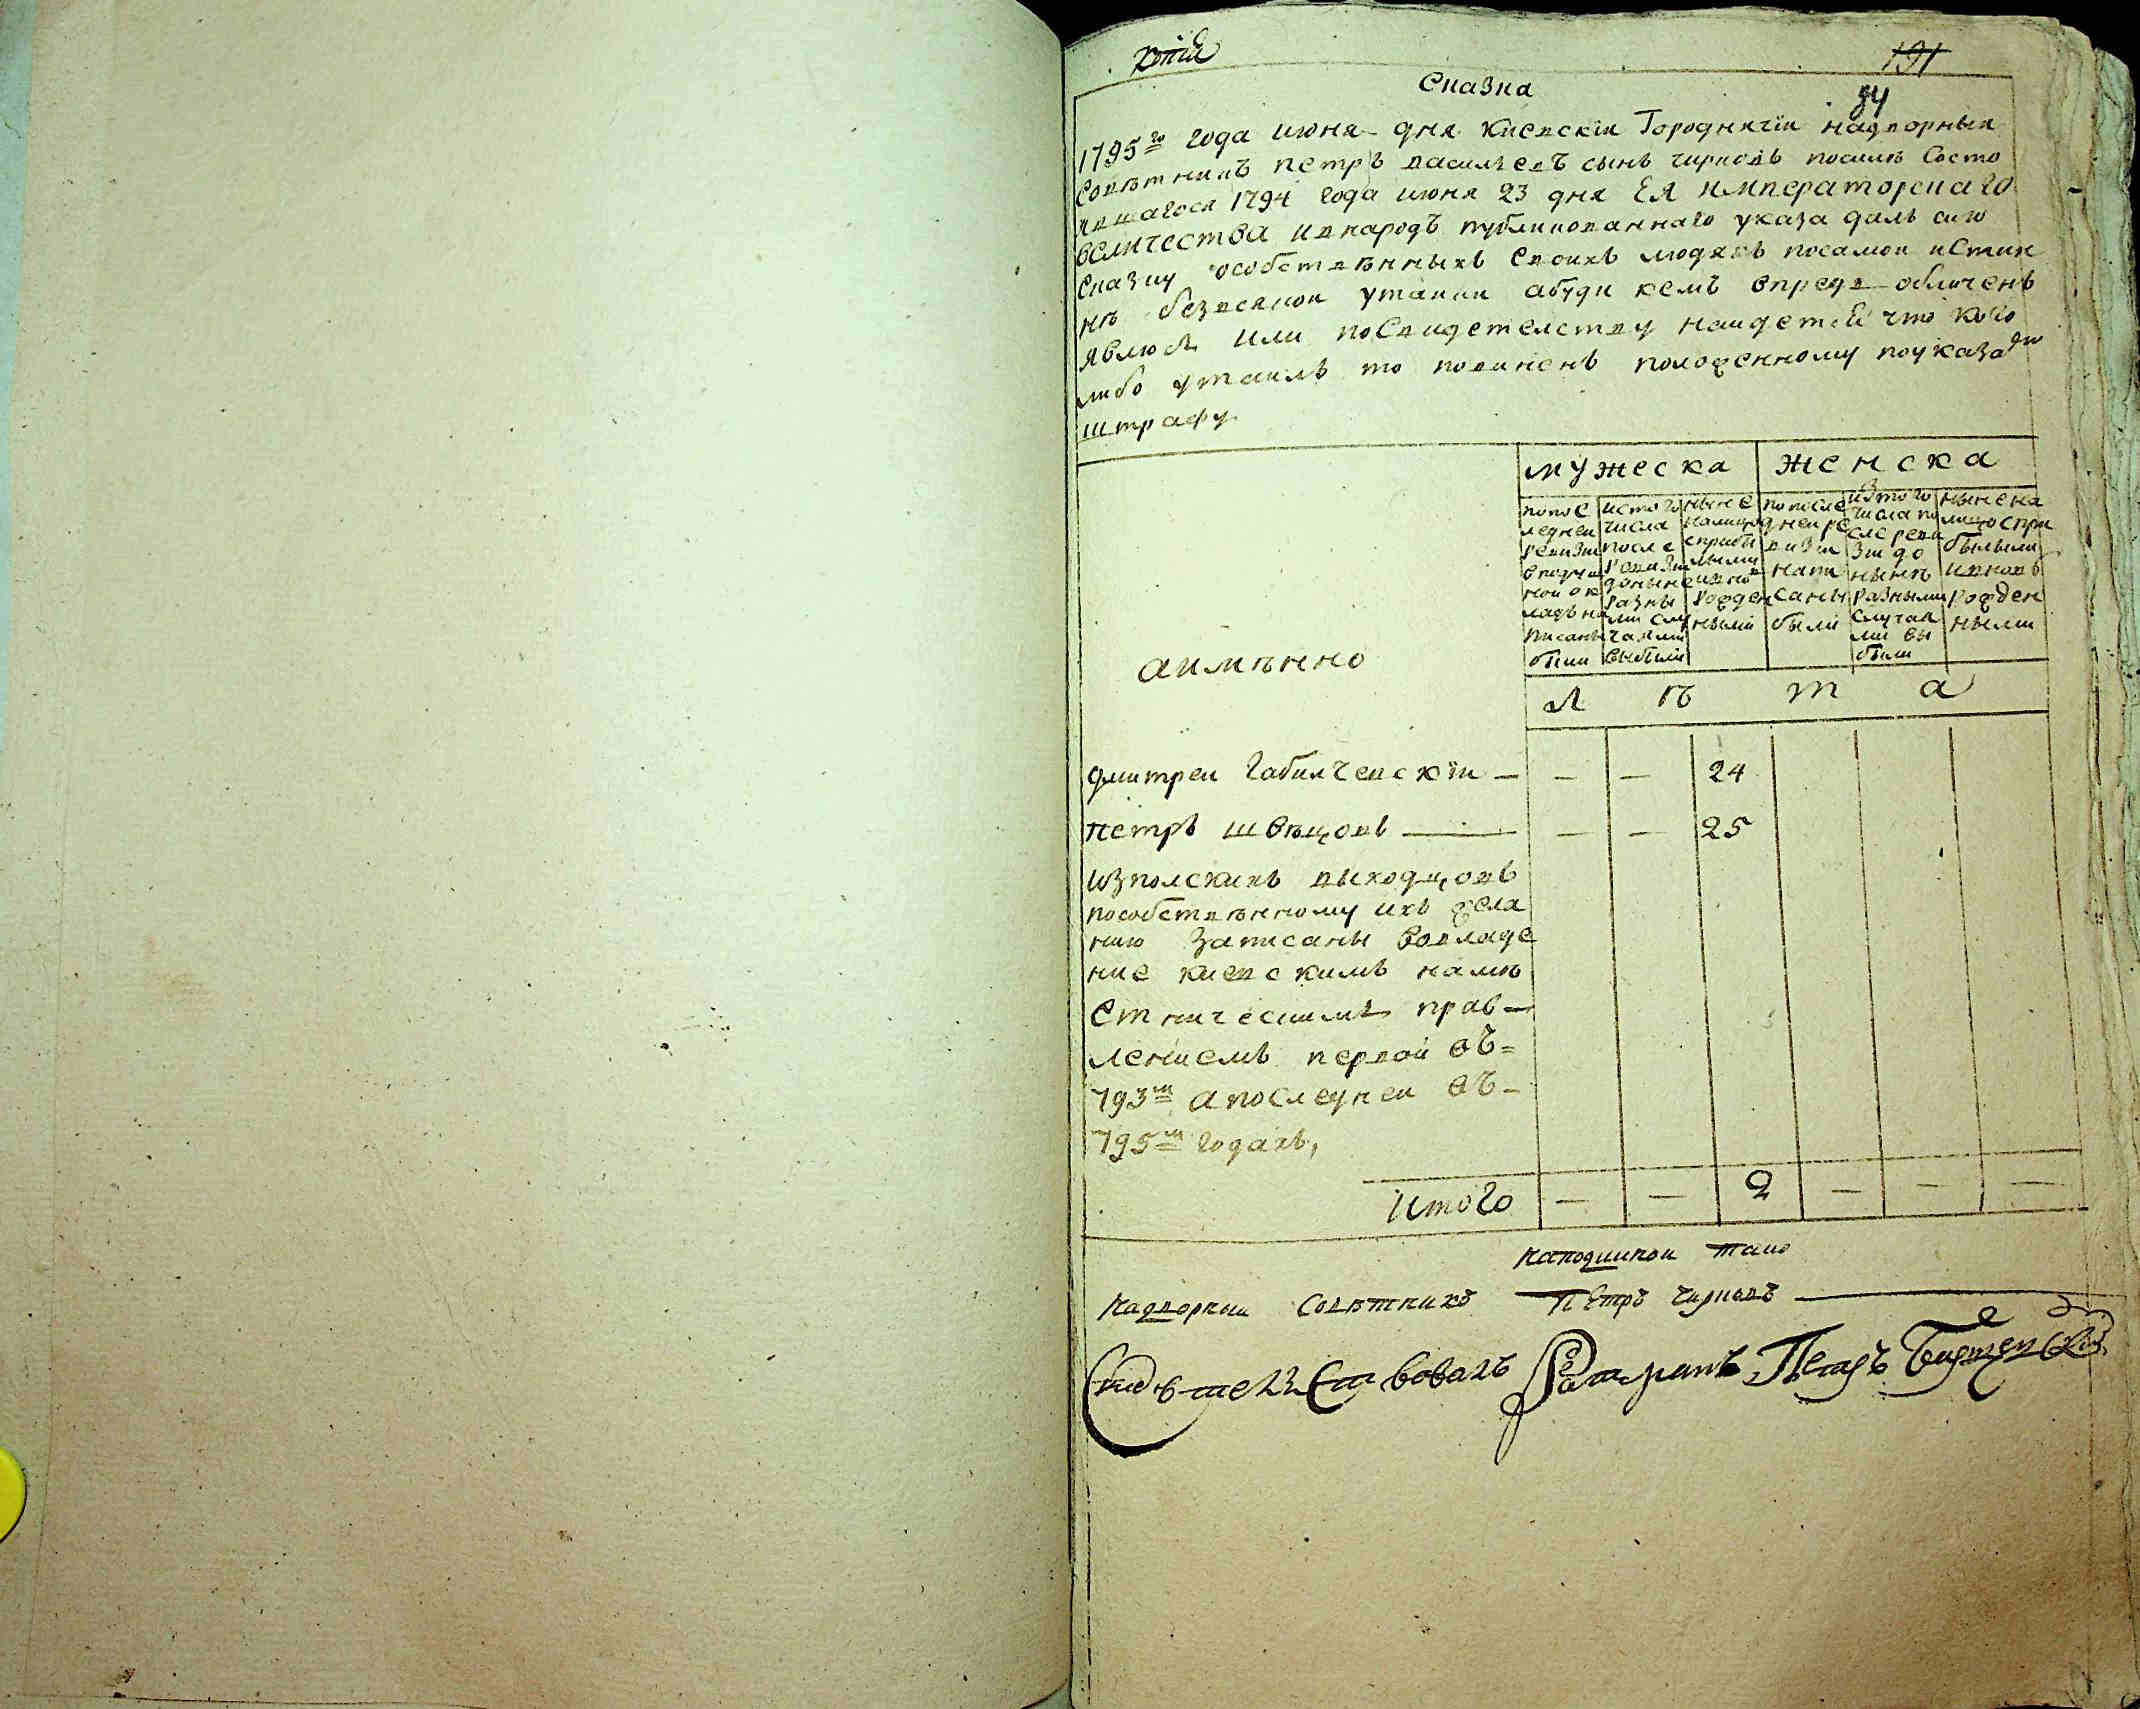 копiя
191
84
Сказка
1795го года июня дня Киевскiи Городничiи надворныи
советникъ петръ васильевъ сынъ чирковъ посиле Состо
явшагося 1794 года июня 23 дня ЕЯ императорскаго
величества ивнародъ публикованнаго указа далъ сию
сказку особственныхъ своихъ людяхъ посамои истин
нѣ безвсякои утаики абуди кемъ впредь обличенъ
явлюсь или посвидетелству наидетсе что кого
либо утаилъ то повиненъ положенному поуказамъ
штрафу
мужеска женска
попос леднеи ревизии вподушномъ окладѣ написаны были
истого числа после ревизии доныне разными случаями выбыли
ныне налицо сприбылыми ивновь рожденными
по после дней ревизии написаны были
изтого числа после ревизии донынѣ разными случаями выбыли
ныне налицо сприбылыми ивновь рожденными
аимѣнно
л ѣ т а
дмитреи Габилчевскiи — — — 24
петръ швѣцовъ — — — 25
изполскихъ выходцовъ
пособственному ихъ жела
нию записаны вовладе
ние киевскимъ намѣ
стническимъ прав
лениемъ первои въ=
793м апоследнеи въ-
795м годахъ,
итого — — 2 — — —
наподлинной тако
надворныи советникъ петръ чирковъ
Свидѣтелствовалъ Ратманъ Петръ